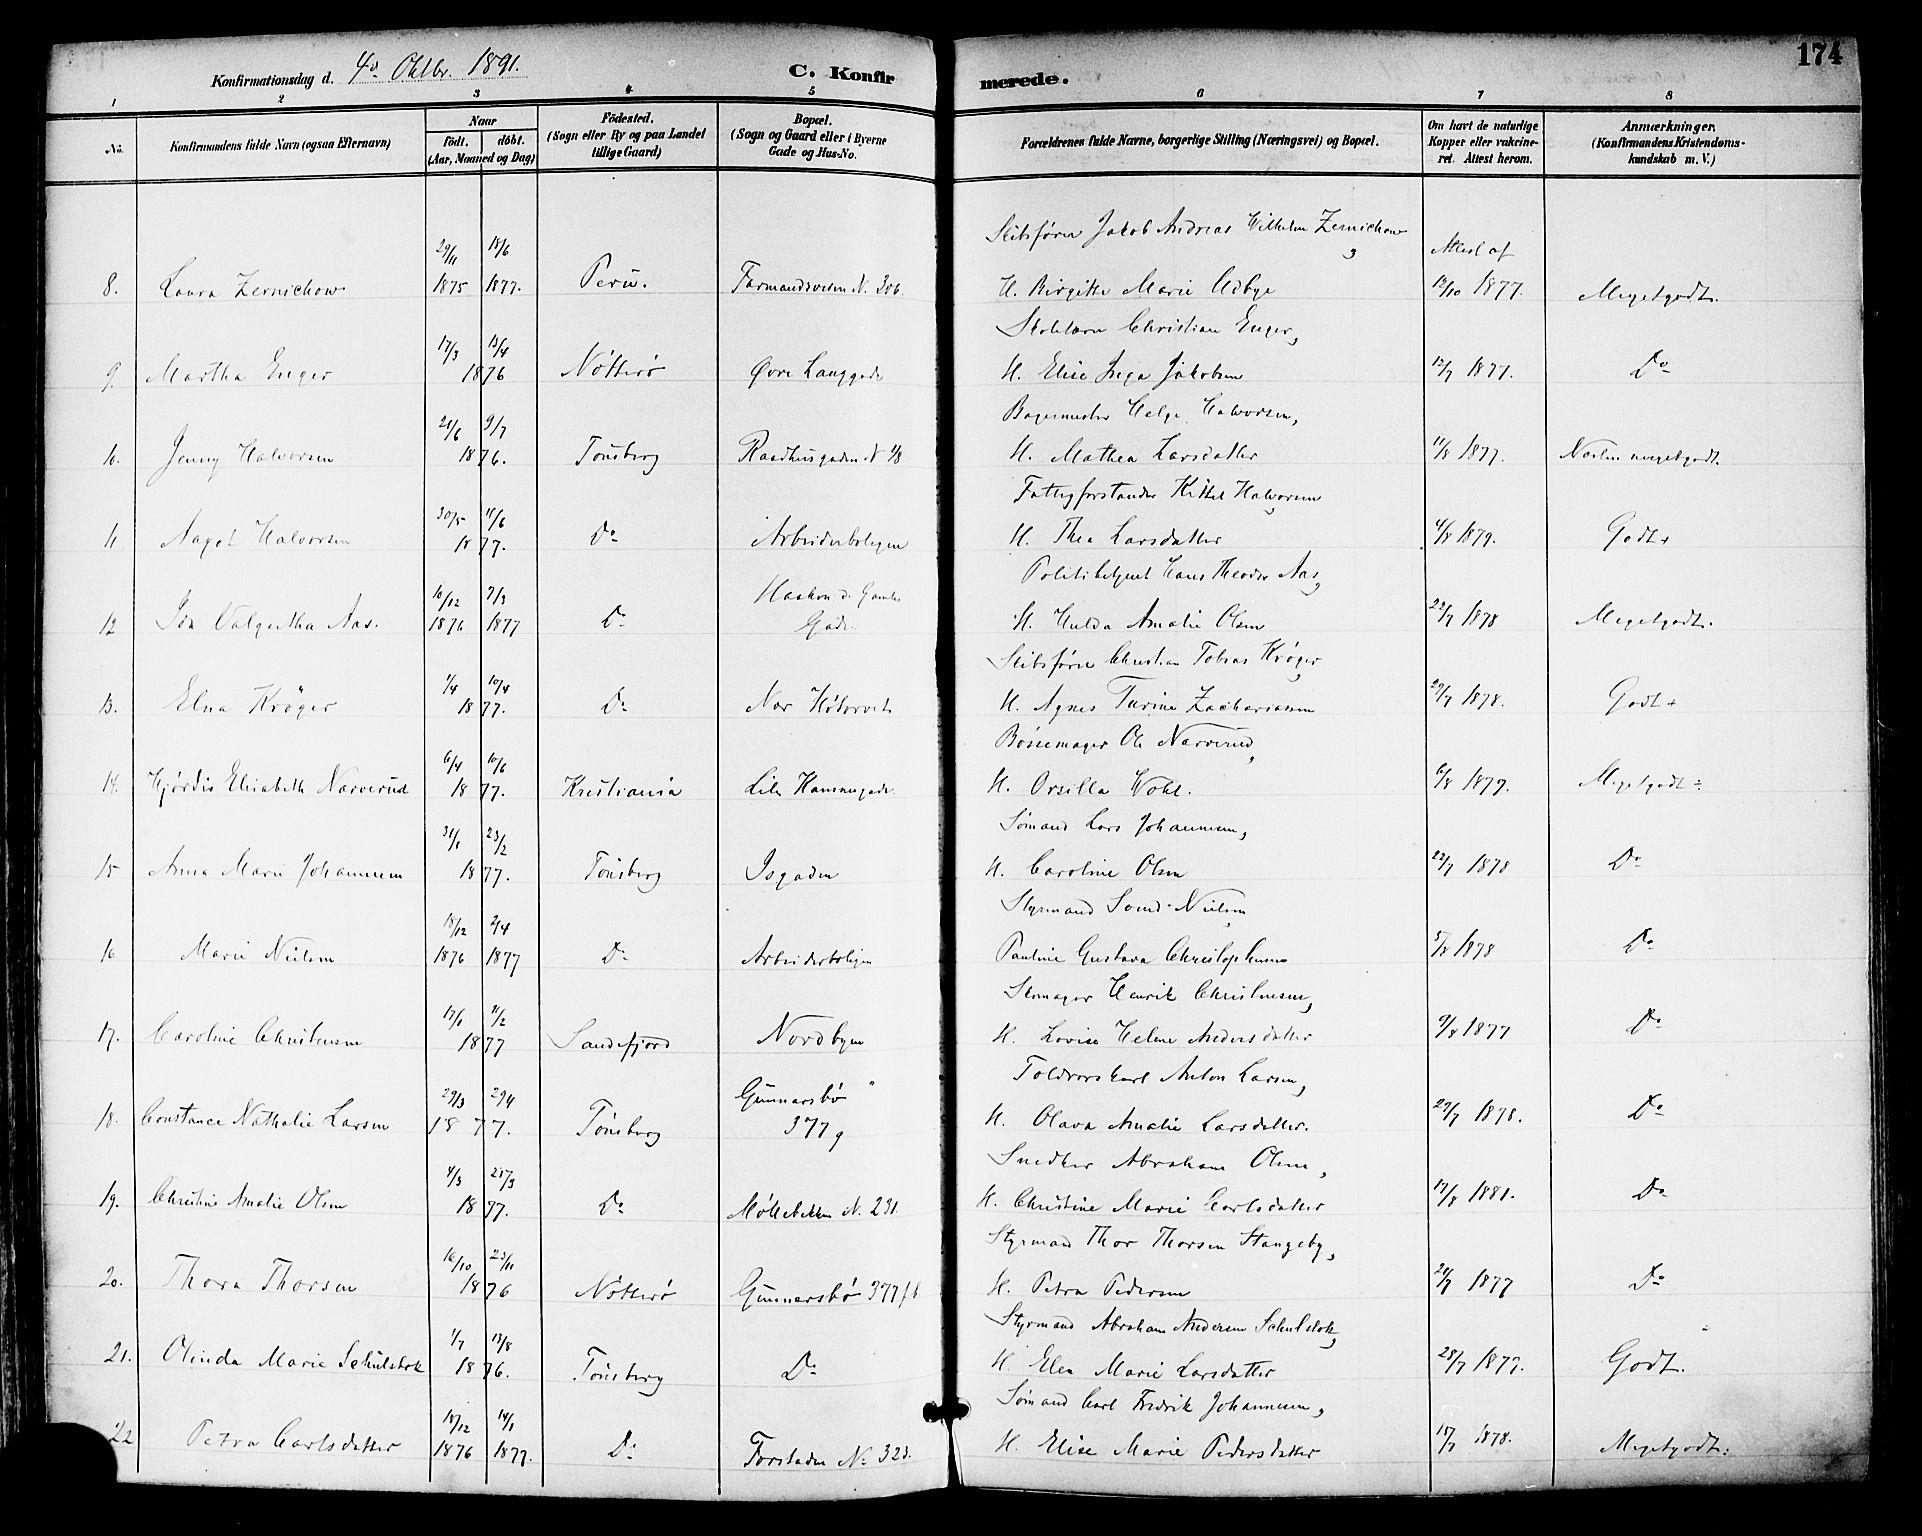 174
Konfirmationsdag d. 4de Oktbr. 1891.
C. Konfirmerede.
1 2 3 4 5 6 7 8
No.
Konfirmandens fulde Navn (ogsaa Efternavn)
Naar
født. døbt.
(Aar, Maaned og Dag)
Fødested.
(Sogn eller By og paa Landet
tillige Gaard)
Bopæl.
(Sogn og Gaard eller i Byerne
Gade og Hus-No.
Forældrenes fulde Navne, borgerlige Stilling (Næringsvei) og Bopæl.
Om havt de naturlige
Kopper eller vakcine-
ret. Attest herom.
Anmærkninger.
(Konfirmandens Kristendoms-
kundskab m. V.)
Skibsfører Jakob Andreas Wilhelm Zernichow,
29/11 18/6 Attest af
8. Laura Zernichow 1875 1877. Peru. Farmandsveien N. 306. H. Birgitte Marie Udbye 12/10 1877. Megetgodt.
Christian Enger,
17/3 13/4
9. Martha Enger 1876 Nøtterø Øvre Langgade H. Elise Inga Jakobsen 12/7 1877. Do
Bagermester Helge Halvorsen,
21/6 9/7
10. Jenny Halvorsen 1876. Tønsberg Raadhusgaden N 18 H. Mathea Larsdatter 11/8 1877. Næsten megetgodt.
Fattigforstander Kittel Halvorsen,
30/5 11/6
11 Aagot Halvorsen 1877. Do Arbeiderboligen H. Thea Larsdatter 4/8 1879. Godt+
Politibetjent Hans Theodor Aas,
10/12 7/3 Haakon d. Gamles
12 Valgertha Aas. 1876 1877 Do Gade. H. Hulda Amalie Olsen 22/7 1878 Megetgodt.
Skibsfører Christian Tobias Krøger,
1/4 10/4
13. Elna Krøger 1877. Do Nær Høtorvet H. Agnes Turine Zachariassen 29/7 1878. Godt+
Bøssemager Ole Narverud,
6/4 10/6
14. Hjørdis Elisabeth Narverud 1877. Kristiania Lille Kammegade. H. Orsilla Wohl. 6/8 1879. Megetgodt÷
Sømand Lars Johannesen,
31/1 23/2
15 Anna Marie Johannesen 1877. Tønsberg Isgaden H. Caroline Olsen 22/7 1878 Do
Styrmand Nielsen,
18/12 2/4
16 Marie Nielsen 1876 1877 Do Arbeiderboligen Pauline Gustava Christophersen 5/8 1878 Do
Skomager Henrik Christensen,
17/1 11/2
17. Caroline Christensen 1877 Sandefjord Nordbyen H. Lovise Helene Andersdatter 9/8 1877 Do
Toldrorskarl Anton Larsen,
29/3 29/4 Gunnarsbø
18. Constance Nathalie Larsen 1877. Tønsberg 377g H. Olava Amalie Larsdatter. 29/7 1878. Do
Snedker Abraham Olsen,
4/3 25/3
19. Christine Amalie Olsen 1877. Do Møllebakken N. 231. H. Christine Marie Carlsdatter 17/8 1881. Do
Styrmand Thor Thorsen Stangeby,
16/10 23/11
20. Thora Thorsen 1876 Nøtterø Gunnarsbø 377 H. Petra Pedersen 21/7 1877 Do
Styrmand Abraham Andersen Schulstok,
1/7 13/8
21. Olinda Marie Schulstok 1876. Tønsberg Do H. Elen Marie Larsdatter 28/7 1877. Godt.
Sømand Carl Fredrik Johannesen,
18/12 14/1
22 Petra Carlsdatter 1876 1877. Do Forstaden No 323. H. Elise Marie Pedersdatter 15/7 1878. Megetgodt.